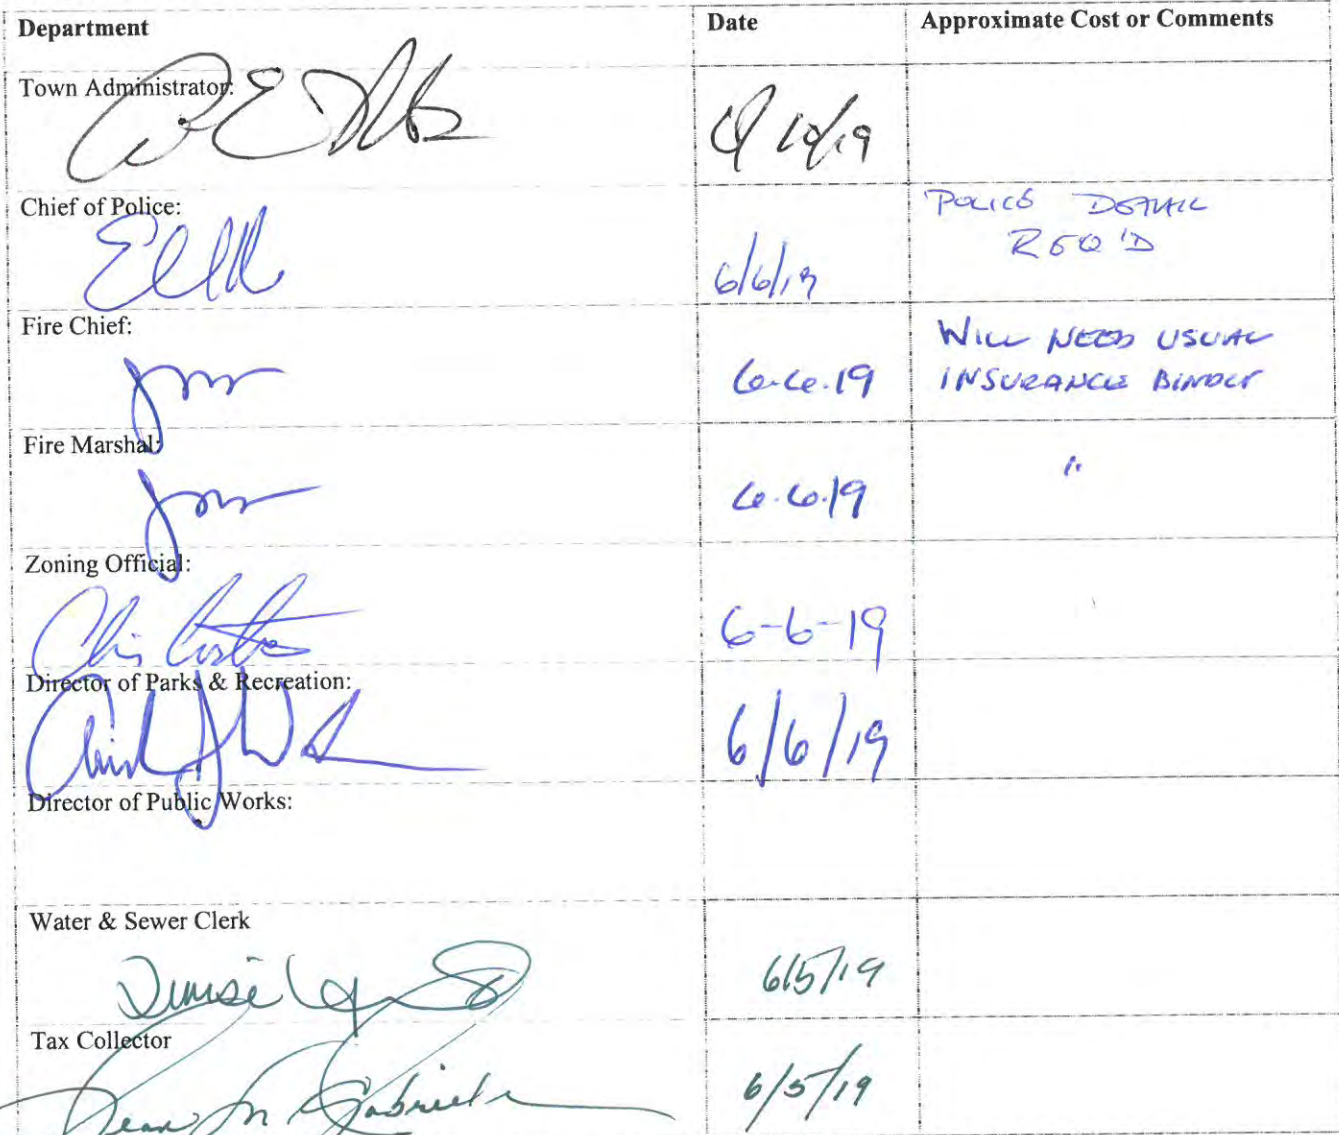 Department Date Approximate Cost or Comments
Town Administrator:
Chief of Police: POLICE DETAIL
REQ'D
6/6/19
Fire Chief: WILL NEED USUAL
6.6.19 INSURANCE BINDER
Fire Marshal:
6.6.19 "
Zoning Official:
6-6-19
Director of Parks & Recreation:
6/6/19
Director of Public Works:
Water & Sewer Clerk
Denise 6/5/19
Tax Collector
Jean M Gabriele 6/5/19